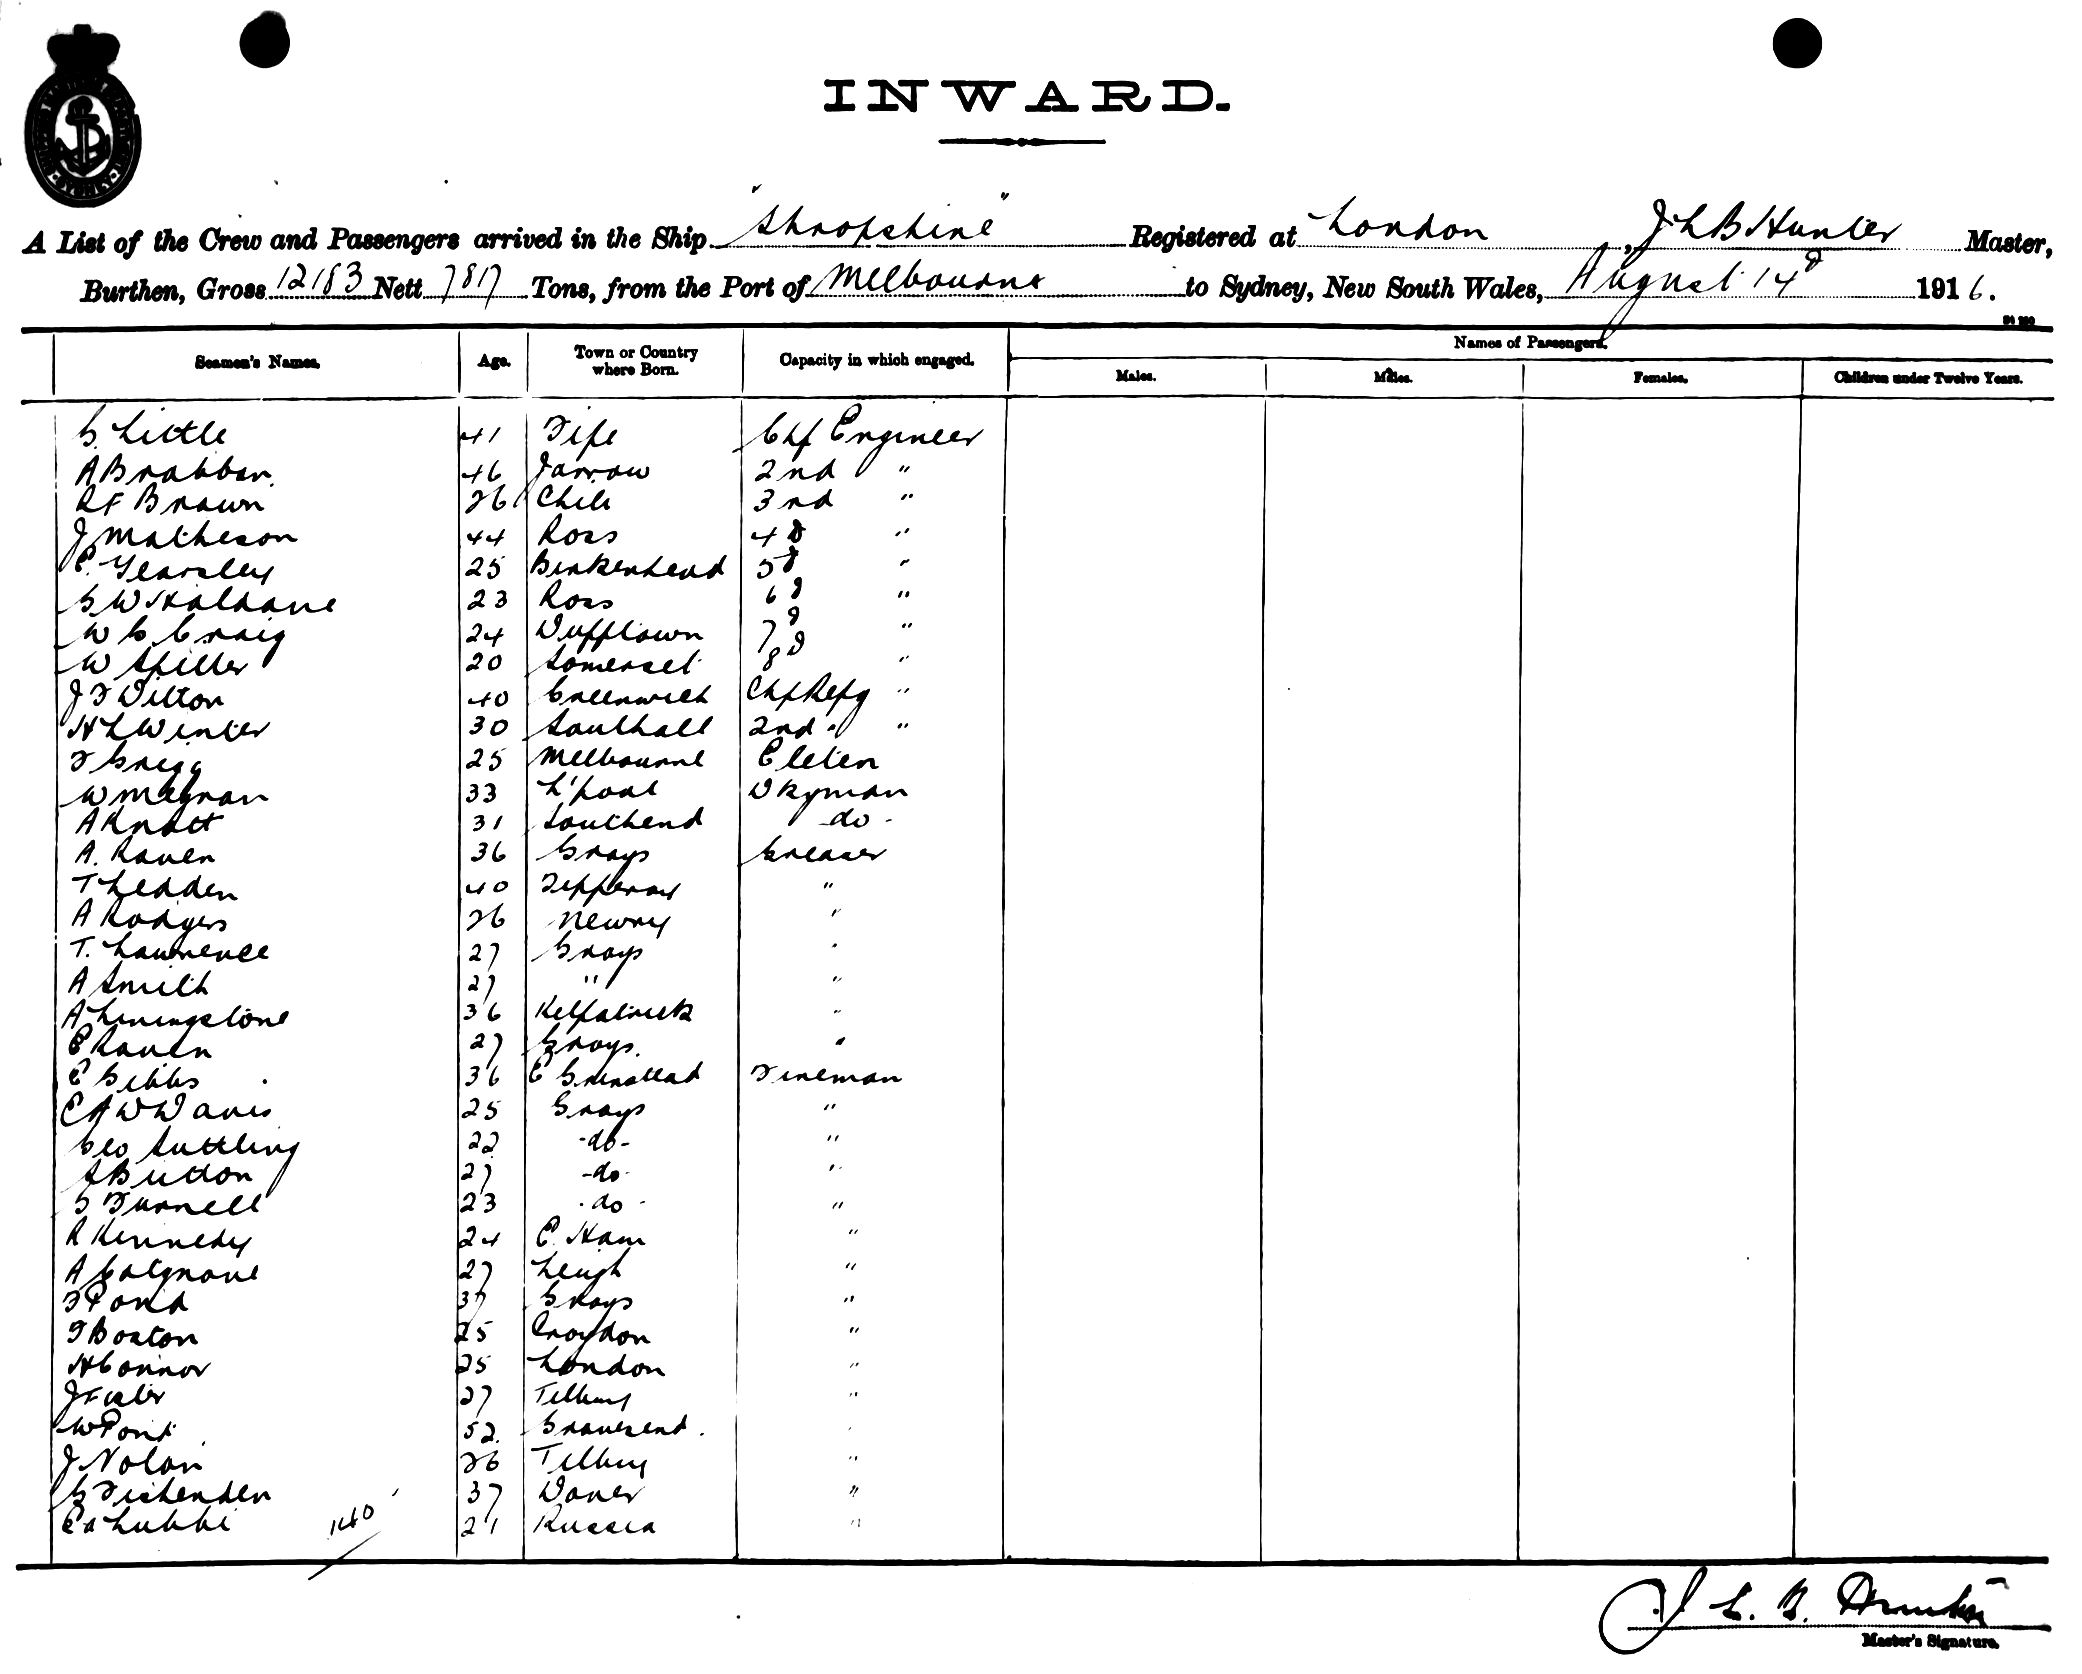 INWARD.
A List of the Crew and Passengers arrived in the Ship "Shropshire" Registered at London, J L B Hunter Master,
Burthen, Gross 12183 Nett 7817 Tons, from the Port of Melbourne to Sydney, New South Wales, August 14th 1916.
Seamen's Names. Age. Town or Country where Born. Capacity in which engaged. Names of Passengers.
Males. Males. Females. Children under Twelve Years.
G. Little 41 Fife Chf Engineer
A Brabban 46 Jarrow 2nd "
R F Brown 26 Chili 3rd "
J Matheson 44 Ross 4th "
E. Yearsley 25 Birkenhead 5th "
G W Haldane 23 Ross 6th "
W G Craig 24 Dufftown 7th "
W Spiller 20 Somerset 8th "
J F Dilton 40 Greenwich Chf Refg "
H L Winter 30 Southall 2nd " "
F Grigg 25 Melbourne Eletin
W 33 L'pool Dkyman
A Knott 31 Southend -do-
A. Raven 36 Grays Greaser
T Ledden 40 Tipperary "
A Rodgers 26 Newry "
T. Lawrence 27 Grays "
A Smith 27 " "
A Livingstone 36 Kilpatrick "
E Raven 27 Grays. "
E Gibbs 36 E Grinstead Fireman
E A W Davis 25 Grays "
Geo Suttling 22 -do- "
S Button 27 -do- "
G Furnell 23 -do- "
R Kennedy 24 E. Ham "
A Colgrave 27 Leigh "
F Pond 37 Grays "
F Boaton 25 Croydon "
H Connor 25 London "
J 27 Tilbury "
W Pont 52 Gravesend. "
J Nolan 26 Tilbury "
G Fishenden 37 Dover "
Ed Lukki 21 Russia "
140
J. L. B. Hunter
Master's Signature.